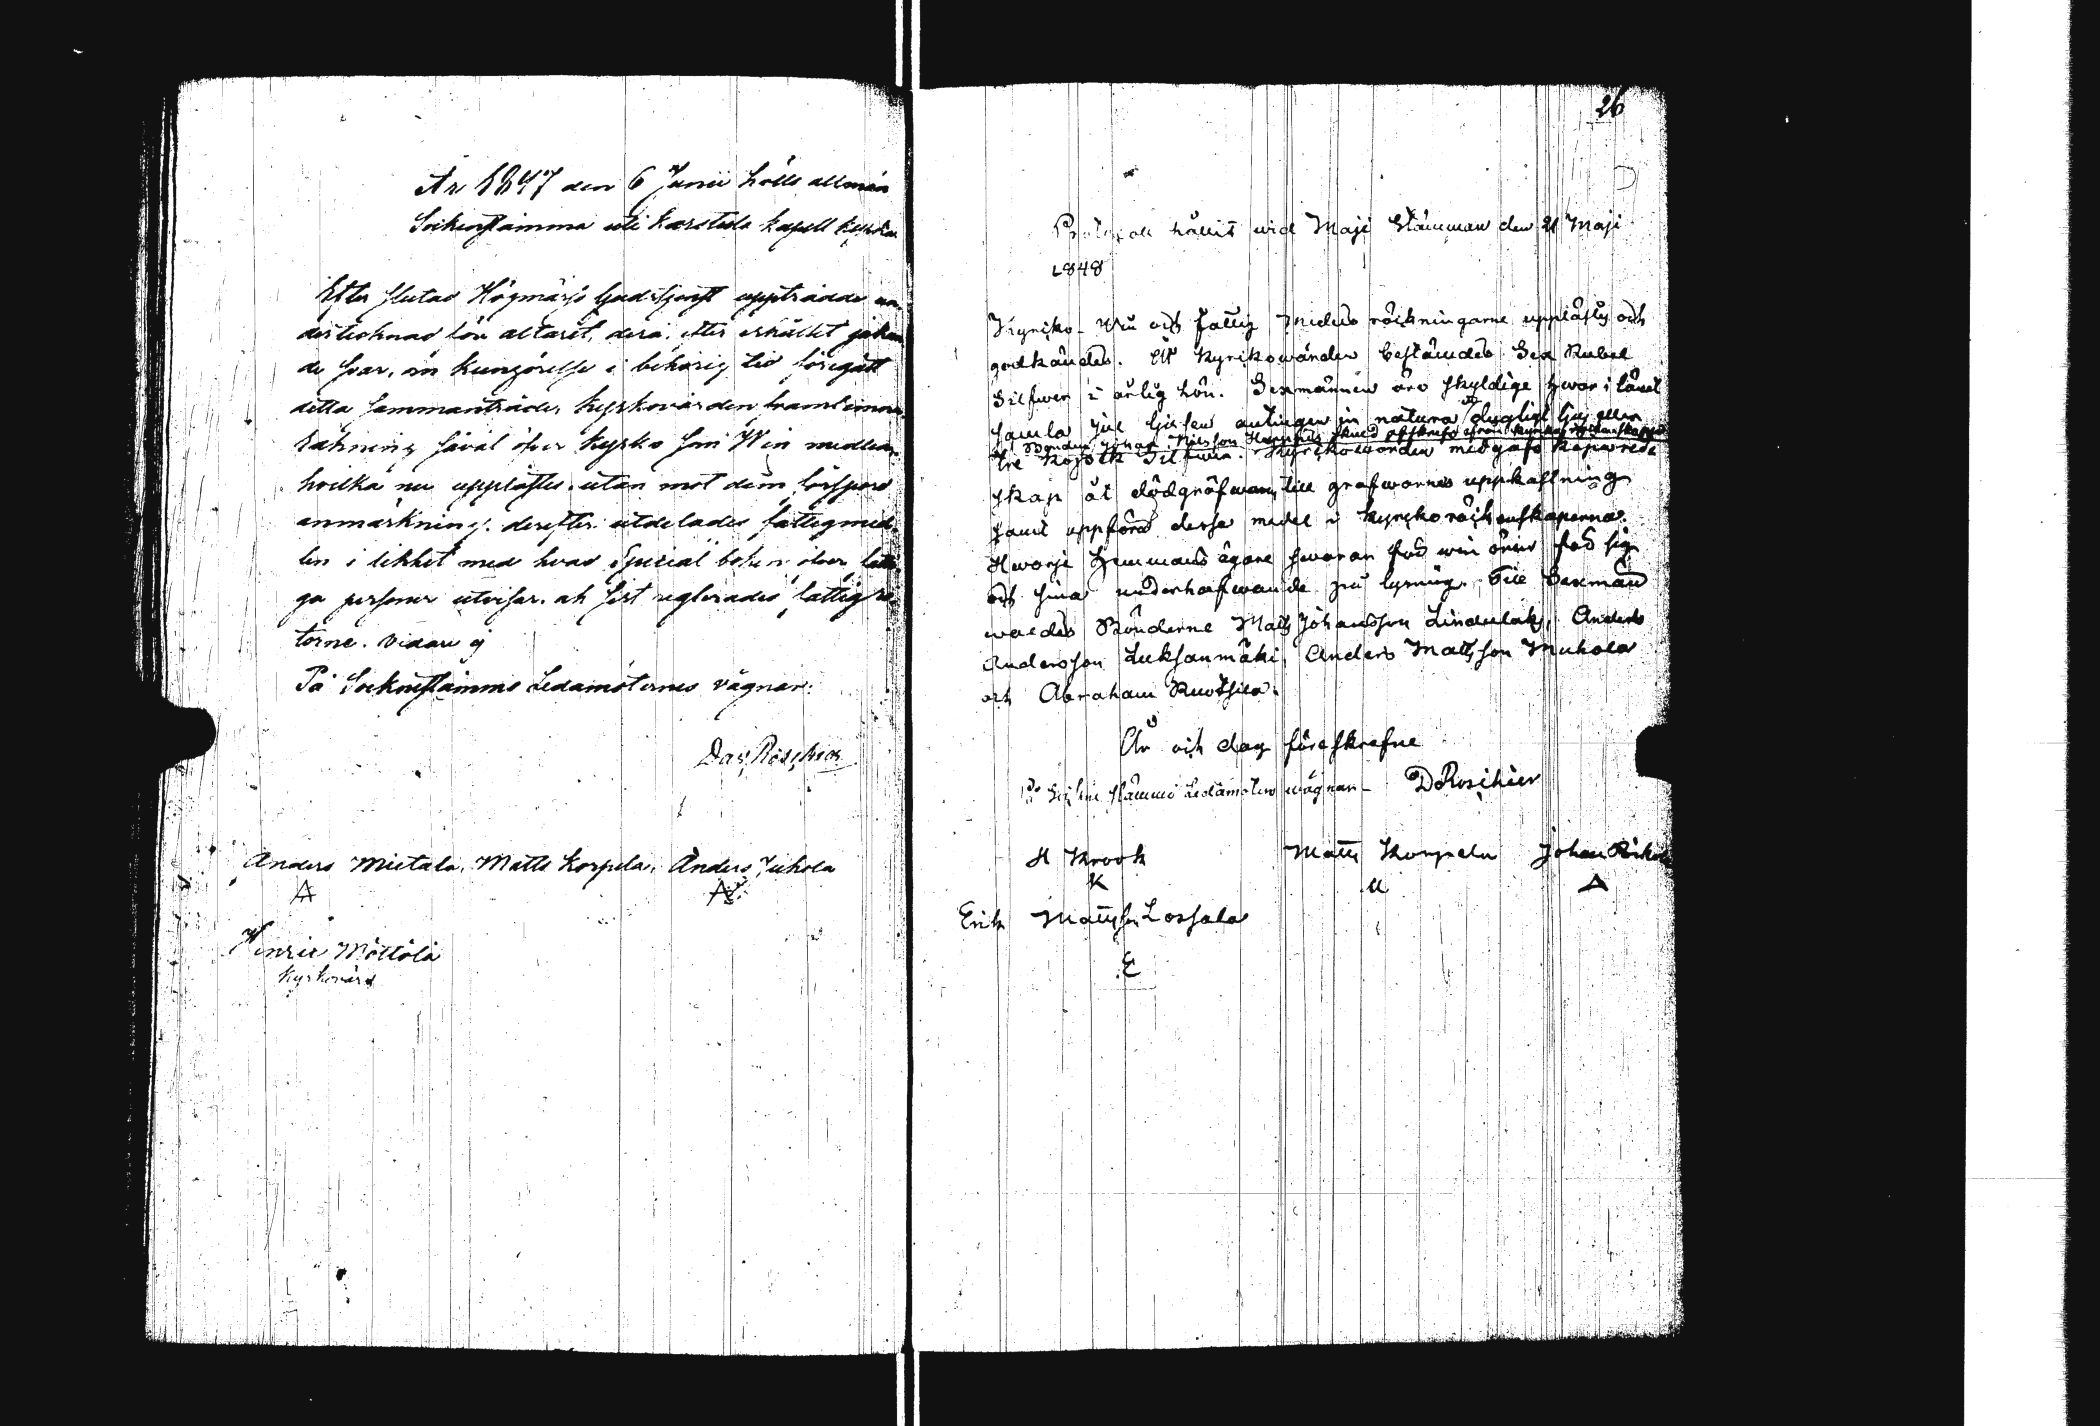 År 1847 den 6 Junii hölls allmän
Sockenstämma uti Karstula kapell kyrka
Efter slutad Högmässo Gudstjenst uppträdde un-
dertecknad för altaret, dera, efter erhållet jakan-
de svar, om kungörelse i behörig tid föregått
detta sammanträde, kyrkovärden framlemna
räkning såväl öfver kyrko som Win medlen
hvilka nu upplästes utan mot dem försport
anmärkning. derefter utdelades fattigmed-
len i likhet med hvad Special boken öfver fatti-
ga personer utvisar. ah sist reglerades fattig ro-
torne. vidare ej
På Sockenstämmo Ledamöternes vägnar:
Dav. Roschier
Anders Mietala, Matts Korpela, Anders Juhola
A A
Henric Möttölä
Kyrkovärd
26
Protokoll hållit wid Maji Stämman den 21 Maji
1848
Kyriko- Win och fattig medels räkningarne upplästs och
godkändes. Åt Kyrikowärden bestämdes Sex Rubel
Silfwer i årlig lön. Sexmännen äro skyldige hwar i länet
samla jul ljusen antingen in natura dugligt ljus eller
Bonden Johan Nilsson
tre kopek Silfwer. Kyrikowärden medgafs
skap åt dödgräfwaren till grafwarnes uppkastning
samt uppföra desse medel i kyrko räkenskaperna.
Hwarje Hemmans ägare swarar för win ören för sig
och sina underhafwande på lysning. Till Sexmän
waldes Bönderne Matts Johansson Lindulaks, Anders
Andersson Luksanmäki, Anders Mattsson Muhola
och Abraham Ruotsila.
År och dag föreskrefne
På Sockne stämmo Ledamöters wägnar- D Roschier
H Krook Matts Korpela Johan
K M A
Erik Mattsson Lossala
E